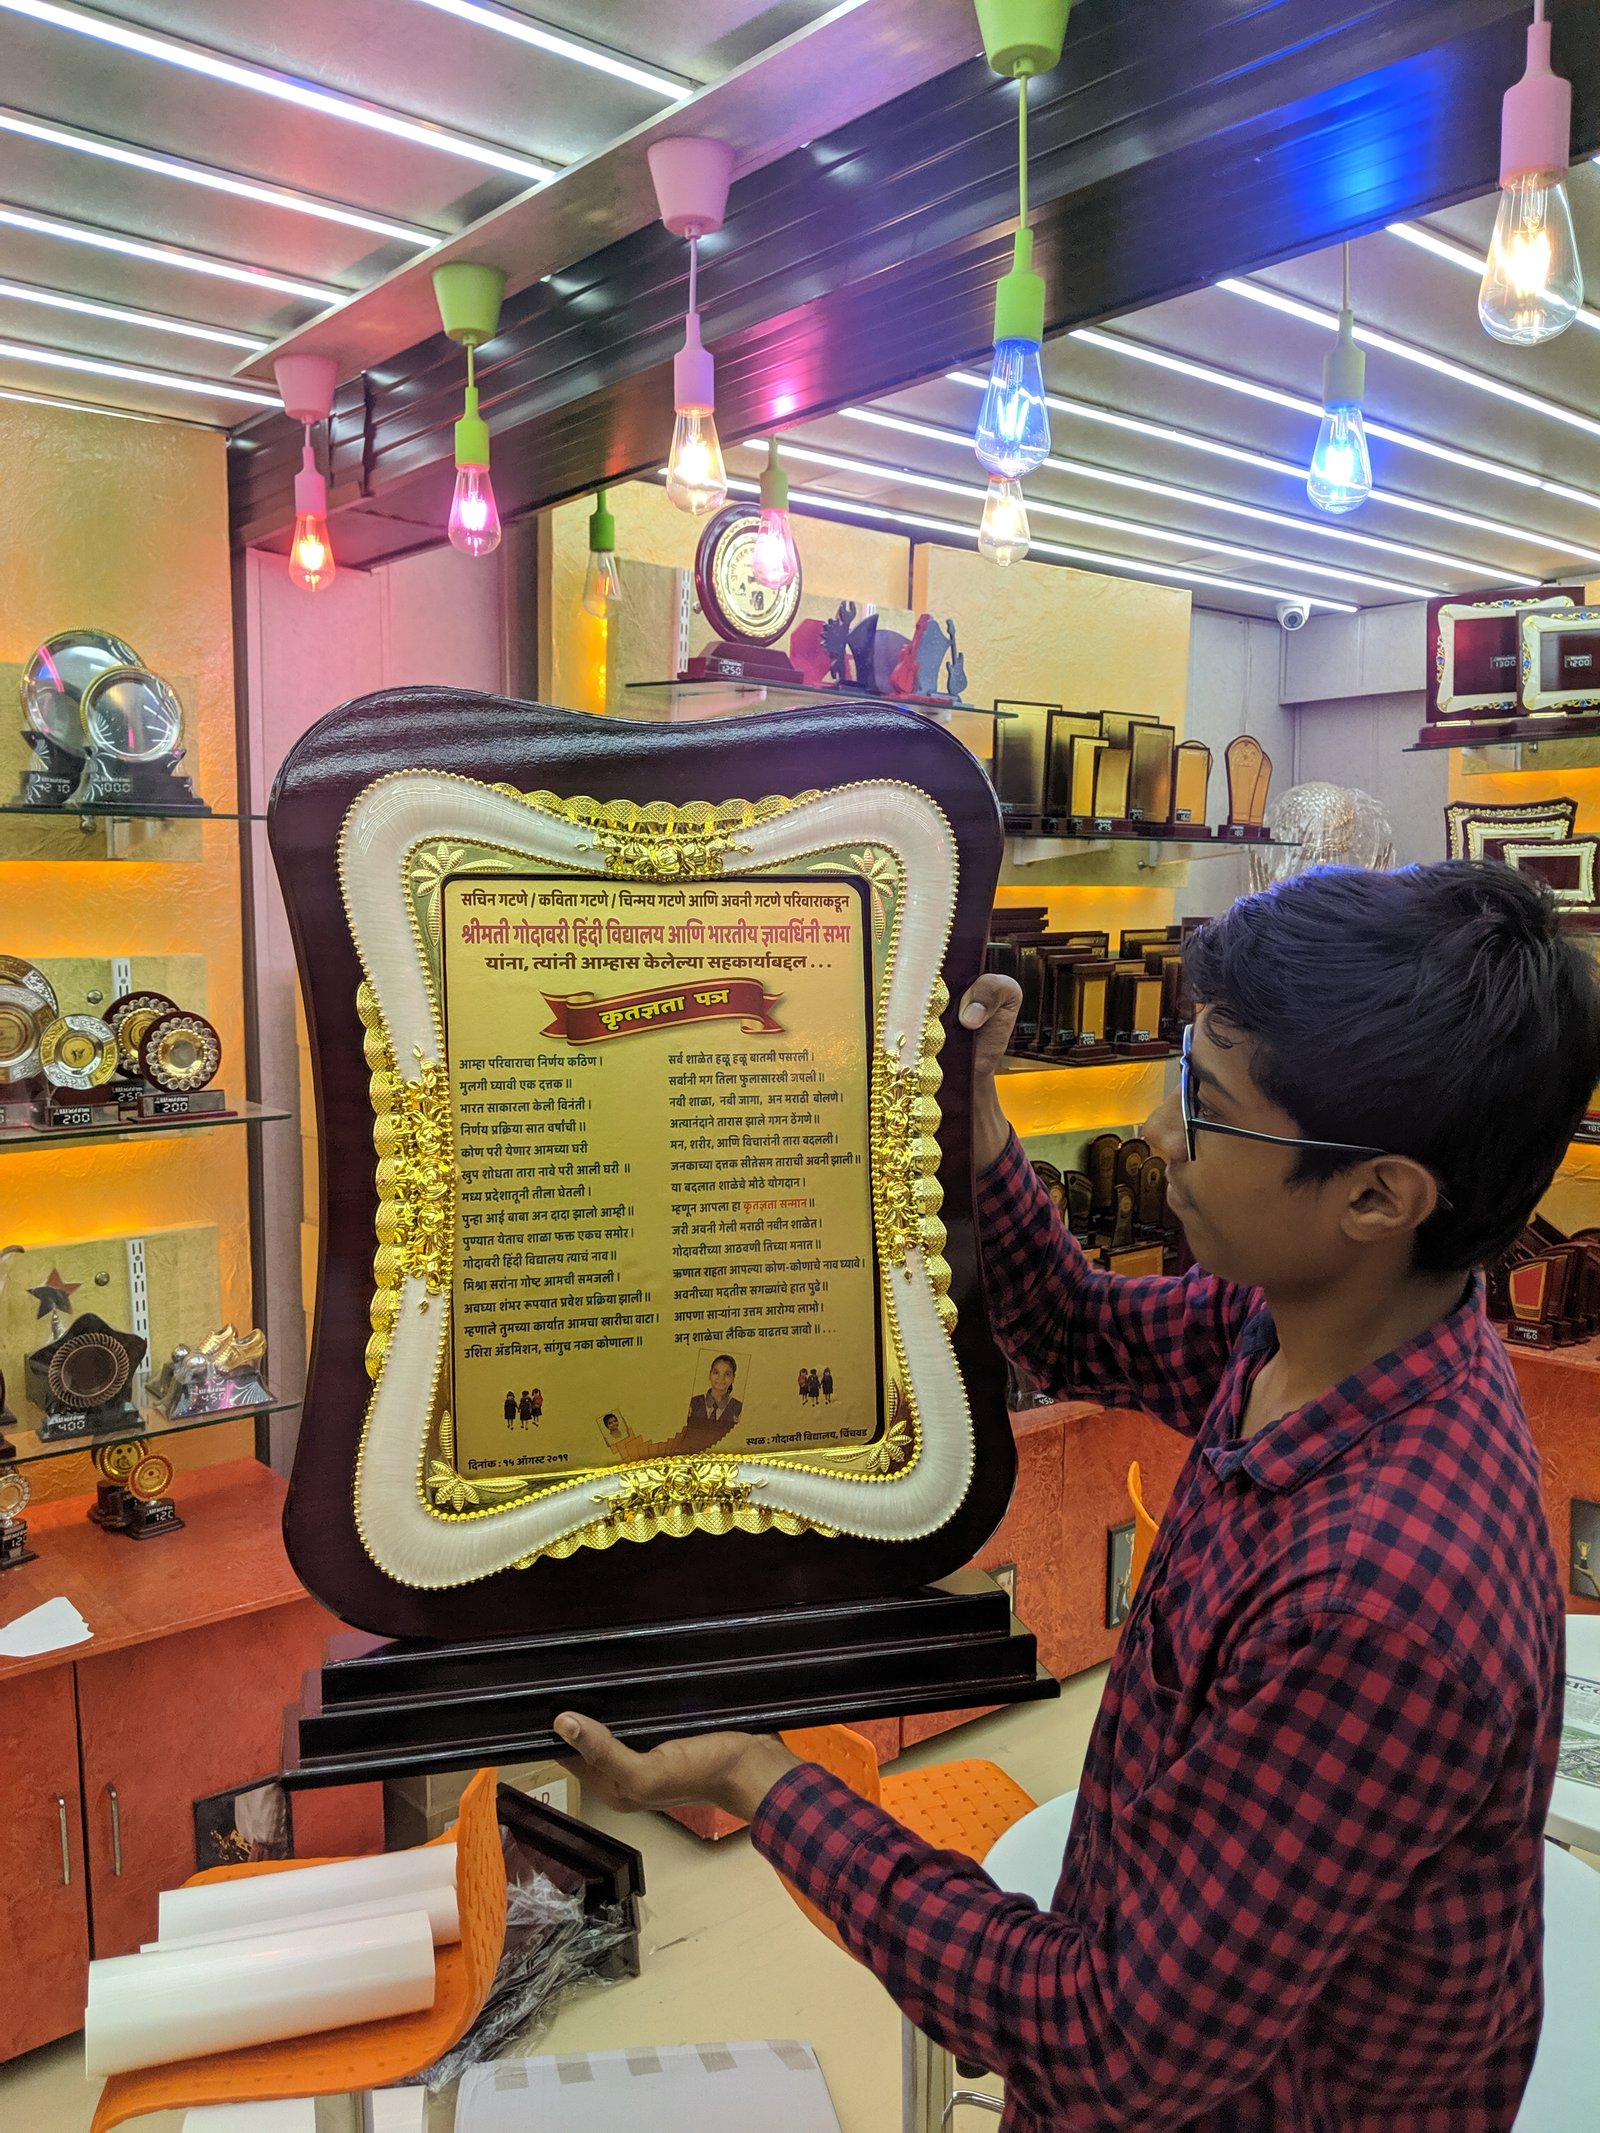 सचिन गटणे / कविता गटणे / चिन्मय गटणे आणि अवनी गटणे परिवाराकडून
श्रीमती गोदावरी हिंदी विद्यालय आणि भारतीय ज्ञावर्धिनी सभा
यांना, त्यांनी आम्हास केलेल्या सहकार्याबद्दल...
कृतज्ञता पत्र
आम्हा परिवाराचा निर्णय कठिण।
मुलगी घ्यावी एक दत्तक॥
भारत साकारला केली विनंती।
निर्णय प्रक्रिया सात वर्षांची॥
कोण परी येणार आमच्या घरी
खुप शोधता तारा नावे परी आली घरी ॥
मध्य प्रदेशातूनी तीला घेतली।
पुन्हा आई बाबा अन दादा झालो आम्ही॥
पुण्यात येताच शाळा फक्त एकच समोर।
गोदावरी हिंदी विद्यालय त्याचं नाव॥
मिश्रा सरांना गोष्ट आमची समजली।
अवघ्या शंभर रूपयात प्रवेश प्रक्रिया झाली॥
म्हणाले तुमच्या कार्यात आमचा खारीचा वाटा।
उशिरा ॲडमिशन, सांगुच नका कोणाला॥
सर्व शाळेत हळू हळू बातमी पसरली।
सर्वानी मग तिला फुलासारखी जपली॥
नवी शाळा, नवी जागा, अन मराठी बोलणे।
अत्यानंदाने तारास झाले गगन ठेंगणे॥
मन, शरीर, आणि विचारांनी तारा बदलली।
जनकाच्या दत्तक सीतेसम ताराची अवनी झाली॥
या बदलात शाळेचे मोठे योगदान।
म्हणून आपला हा कृतज्ञता सन्मान॥
जरी अवनी गेली मराठी नवीन शाळेत।
गोदावरीच्या आठवणी तिच्या मनात॥
ऋणात राहता आपल्या कोण-कोणाचे नाव घ्यावे।
अवनीच्या मदतीस सगळ्यांचे हात पुढे॥
आपणा साऱ्यांना उत्तम आरोग्य लाभो।
अन् शाळेचा लैकिक वाढतच जावो॥...
स्थळ : गोदावरी विद्यालय, चिंचवड
दिनांक : १५ ऑगस्ट २०१९
1250
1300
1200
210
1000
250
200
200
400
450
120
160